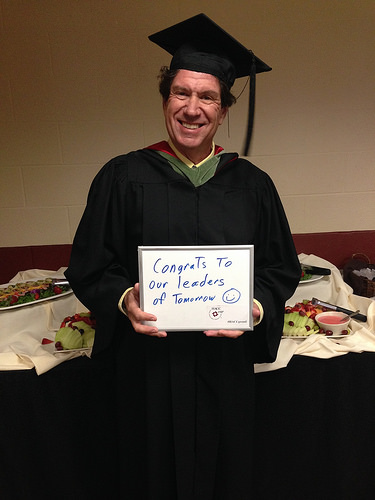 Congrats To
our leaders
of Tomorrow